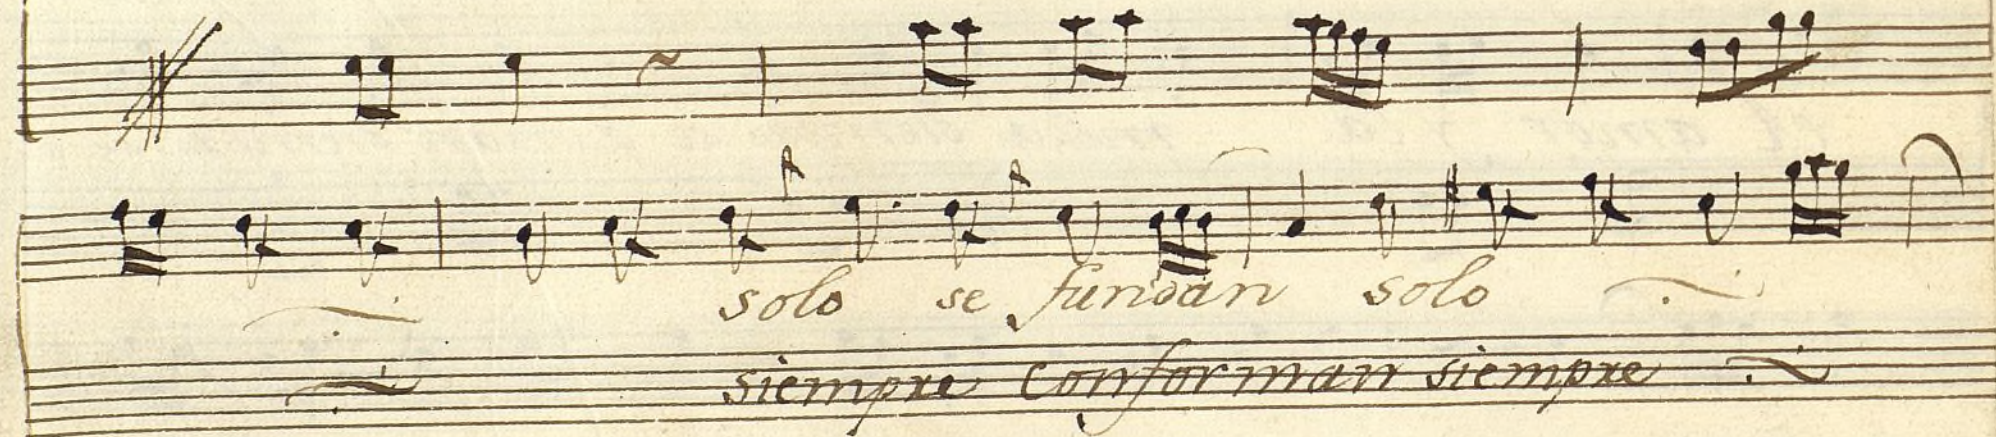 solo se fundan solo
siempre Conforman siempre